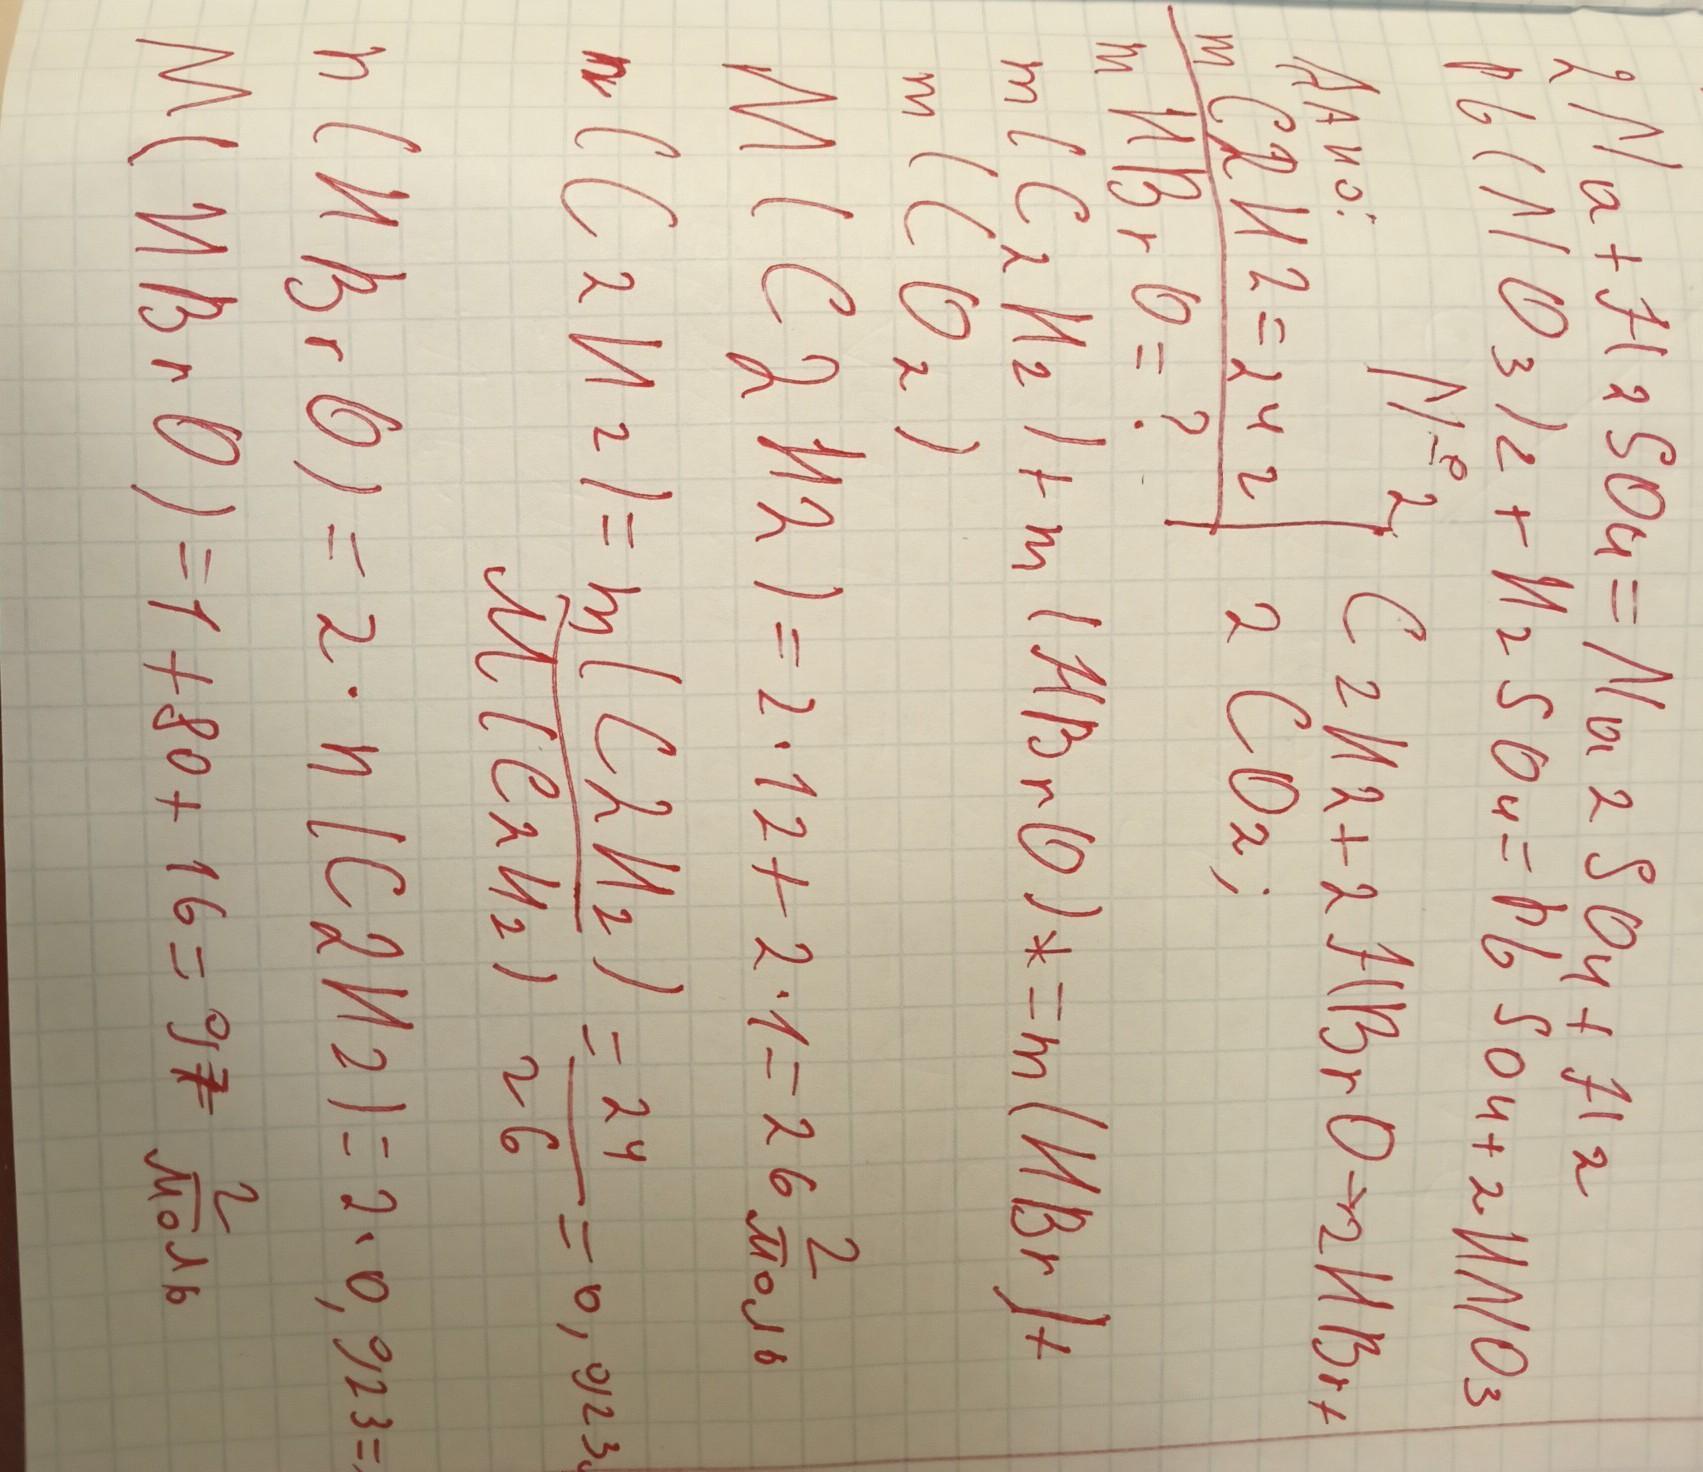 2Na+H2SO4=Na2SO4+H2
Pb(NO3)2+H2SO4=PbSO4+2HNO3
№2
Дано:
m C2H2=24г
m HBrO=?
C2H2+2HBrO→2HBr+
2CO2;
m(C2H2)+m(HBrO)*=m(HBr)+
m(CO2)
M(C2H2)=2·12+2·1=26 г/моль
n(C2H2)=m(C2H2)/M(C2H2)=24/26=0,923
n(HBrO)=2·n(C2H2)=2·0,923=
M(HBrO)=1+80+16=97 г/моль